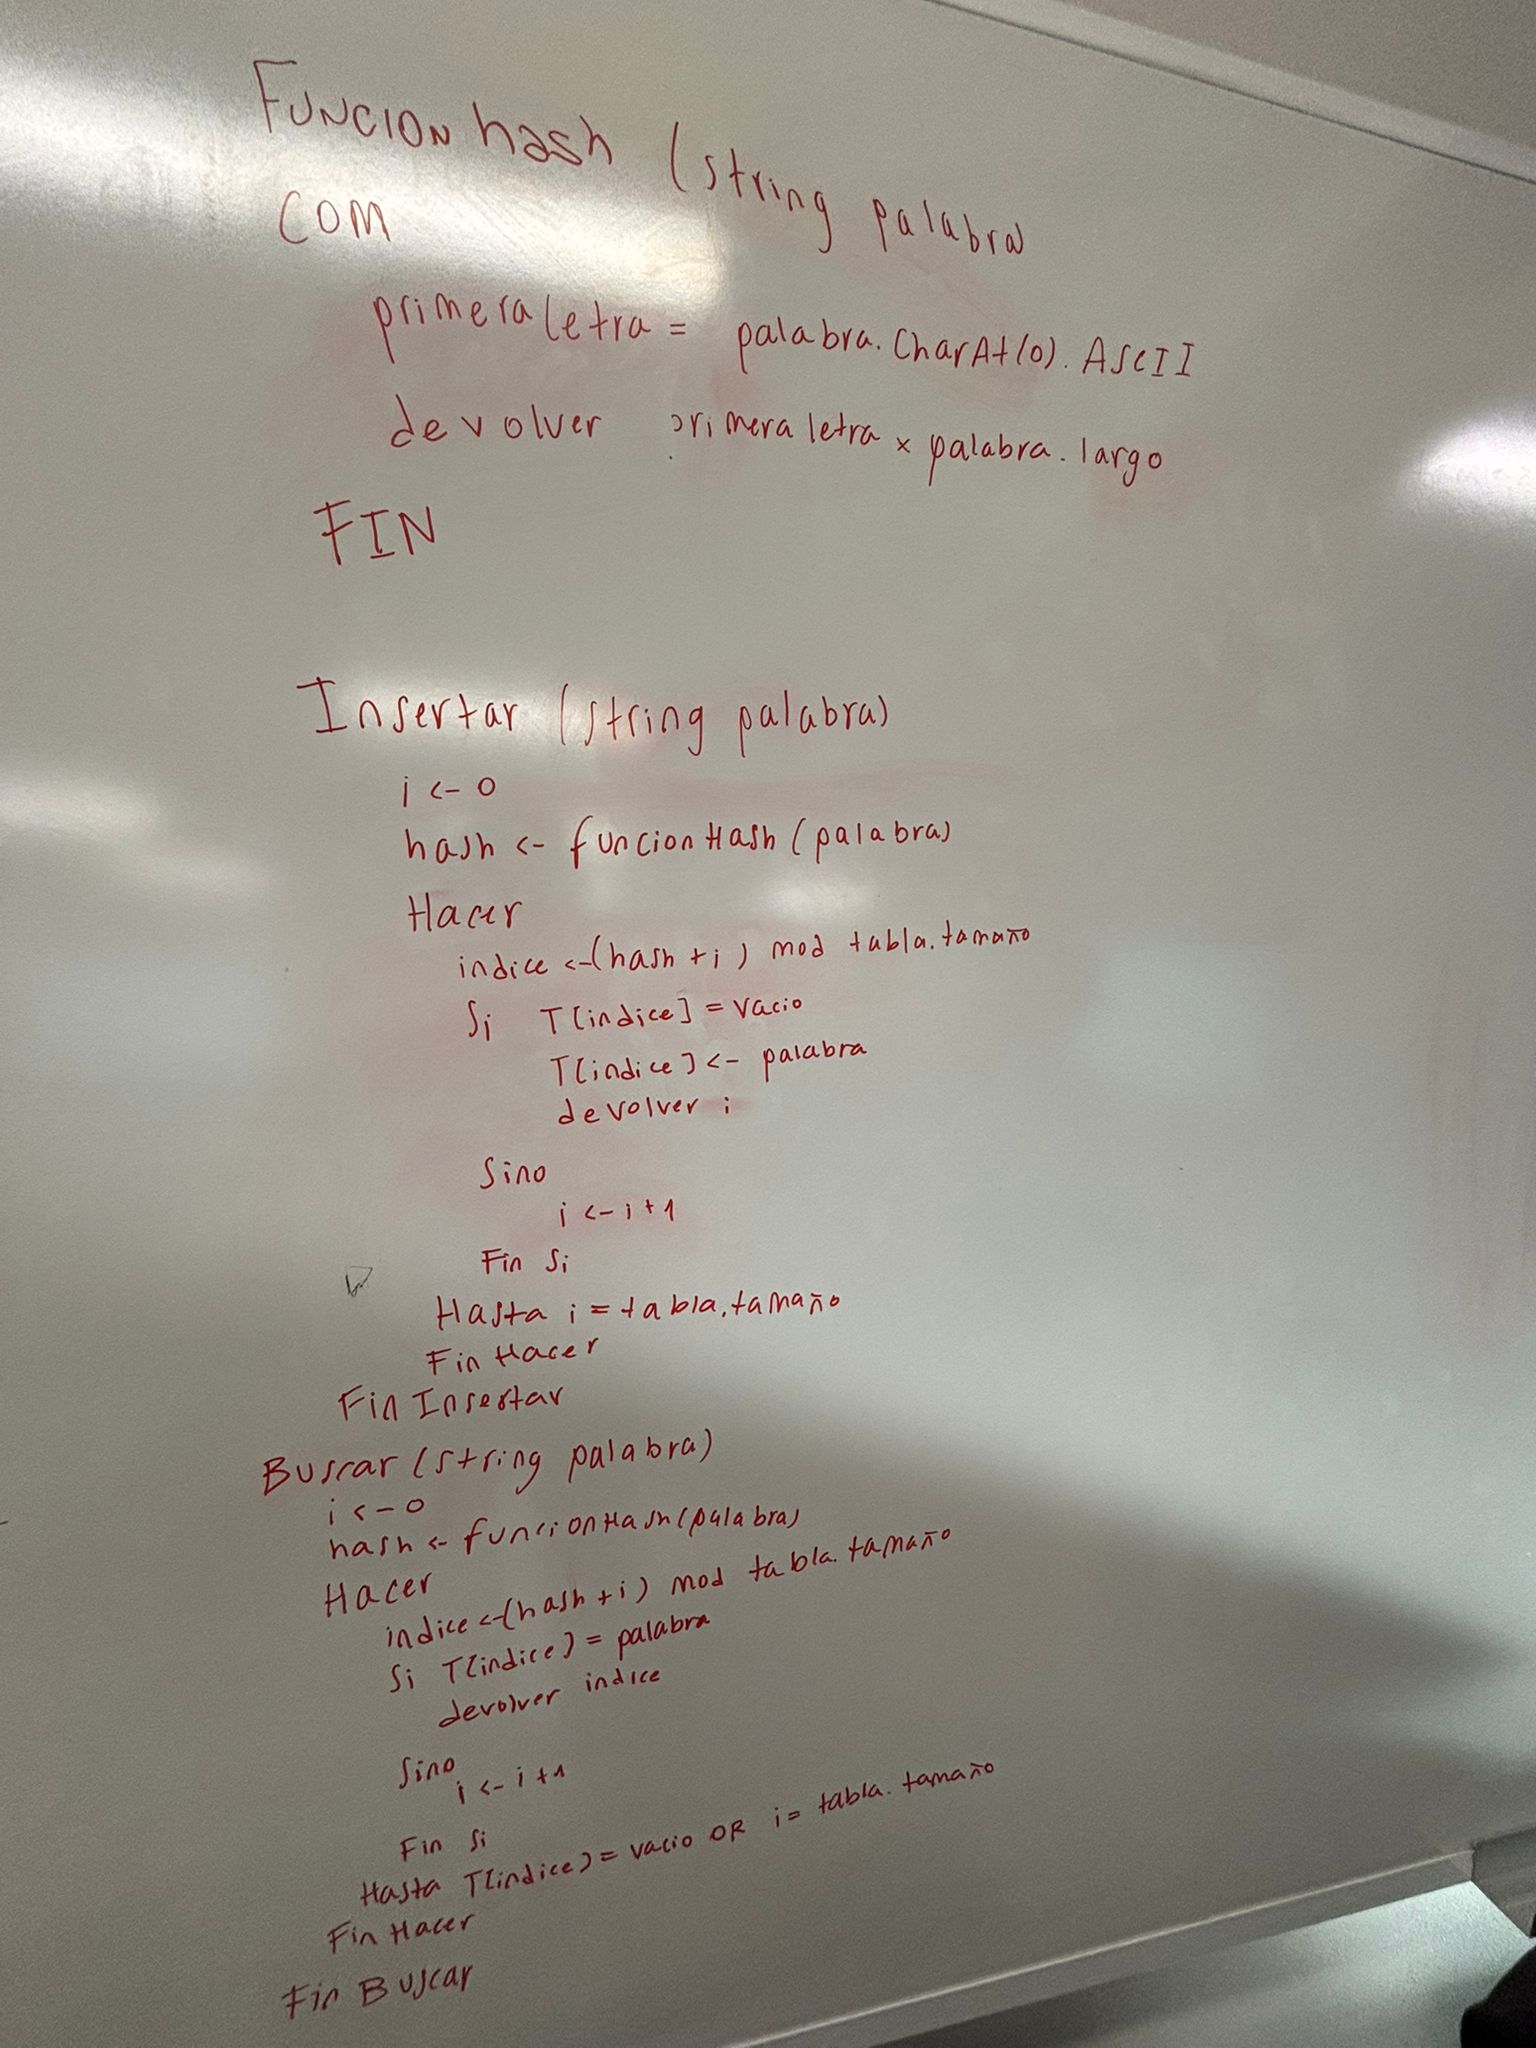 FUNCION hash (string palabra)
COM
primera letra = palabra. CharAt(0). ASCII
devolver primera letra x palabra. largo
FIN
Insertar (string palabra)
i <- 0
hash <- funcionHash (palabra)
Hacer
indice <-(hash + i) mod tabla.tamaño
Si T[indice] = vacio
T[indice] <- palabra
devolver i
Sino
i <- i + 1
Fin Si
Hasta i = tabla.tamaño
Fin Hacer
Fin Insertar
Buscar (string palabra)
i <- 0
hash <- funcionHash(palabra)
Hacer
indice <-(hash + i) mod tabla. tamaño
Si T[indice] = palabra
devolver indice
Sino
i <- i + 1
Fin Si
Hasta T[indice] = vacio OR i = tabla. tamaño
Fin Hacer
Fin Buscar